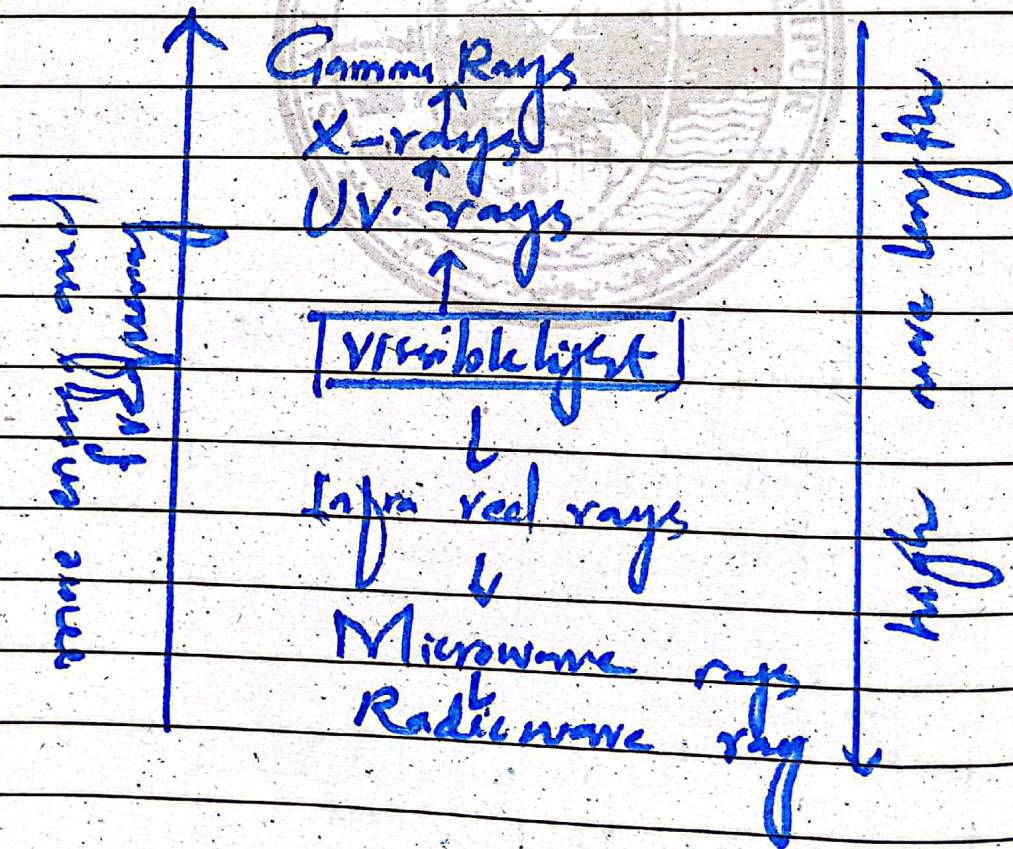 Gamma Rays
X-rays
UV. rays
Visible light
Infra red rays
Microwave rays
Radiowave ray
high wave length
more
frequency